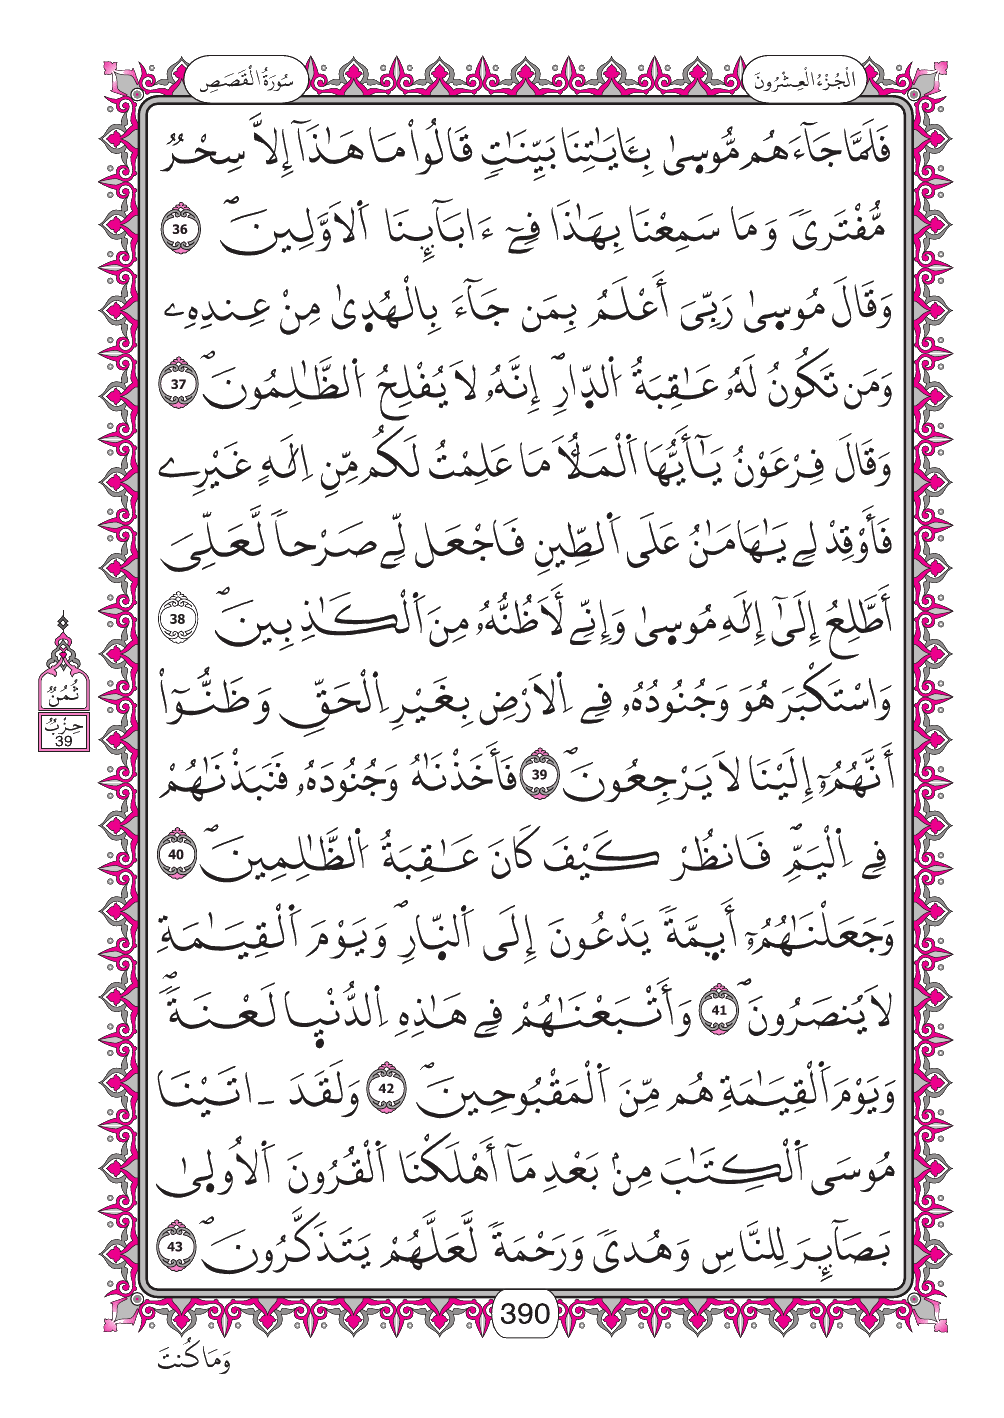 الْجُزْءُ الْعِشْرُونَ
سُورَةُ الْقَصَصِ
فَلَمَّا جَآءَهُم مُّوسۭىٰ بِـَٔايَٰتِنَا بَيِّنَٰتٖ قَالُواْ مَا هَٰذَآ إِلَّا سِحْرٞ
مُّفْتَرىٗ وَمَا سَمِعْنَا بِهَٰذَا فِےٓ ءَابَآئِنَا اَ۬لَاوَّلِينَۖ 36
وَقَالَ مُوسۭىٰ رَبِّىَ أَعْلَمُ بِمَن جَآءَ بِالْهُدۭىٰ مِنْ عِندِهِۦ
وَمَن تَكُونُ لَهُۥ عَٰقِبَةُ اُ۬لدّۭارِۖ إِنَّهُۥ لَا يُفْلِحُ اُ۬لظَّٰلِمُونَۖ 37
وَقَالَ فِرْعَوْنُ يَٰٓأَيُّهَا اَ۬لْمَلَأُ مَا عَلِمْتُ لَكُم مِّنِ اِلَٰهٍ غَيْرِے
فَأَوْقِدْ لِے يَٰهَٰمَٰنُ عَلَى اَ۬لطِّينِ فَاجْعَل لِّے صَرْحاٗ لَّعَلِّىَ
أَطَّلِعُ إِلَىٰٓ إِلَٰهِ مُوسۭىٰ وَإِنِّے لَأَظُنُّهُۥ مِنَ اَ۬لْكَٰذِبِينَۖ 38
وَاسْتَكْبَرَ هُوَ وَجُنُودُهُۥ فِے اِ۬لَارْضِ بِغَيْرِ اِ۬لْحَقِّ وَظَنُّوٓاْ
أَنَّهُمُۥٓ إِلَيْنَا لَا يَرْجِعُونَۖ 39 فَأَخَذْنَٰهُ وَجُنُودَهُۥ فَنَبَذْنَٰهُمْ
فِے اِ۬لْيَمِّۖ فَانظُرْ كَيْفَ كَانَ عَٰقِبَةُ اُ۬لظَّٰلِمِينَۖ 40
وَجَعَلْنَٰهُمُۥٓ أَئِمَّةٗ يَدْعُونَ إِلَى اَ۬لنّۭارِۖ وَيَوْمَ اَ۬لْقِيَٰمَةِ
لَا يُنصَرُونَۖ 41 وَأَتْبَعْنَٰهُمْ فِے هَٰذِهِ اِ۬لدُّنْيۭا لَعْنَةٗۖ
وَيَوْمَ اَ۬لْقِيَٰمَةِ هُم مِّنَ اَ۬لْمَقْبُوحِينَۖ 42 وَلَقَدَ ـ اتَيْنَا
مُوسَى اَ۬لْكِتَٰبَ مِنۢ بَعْدِ مَآ أَهْلَكْنَا اَ۬لْقُرُونَ اَ۬لُاولۭىٰ
بَصَآئِرَ لِلنَّاسِ وَهُدىٗ وَرَحْمَةٗ لَّعَلَّهُمْ يَتَذَكَّرُونَۖ 43
ثُمُنٌ
حِزْبٌ
39
390
وَمَا كُنتَ